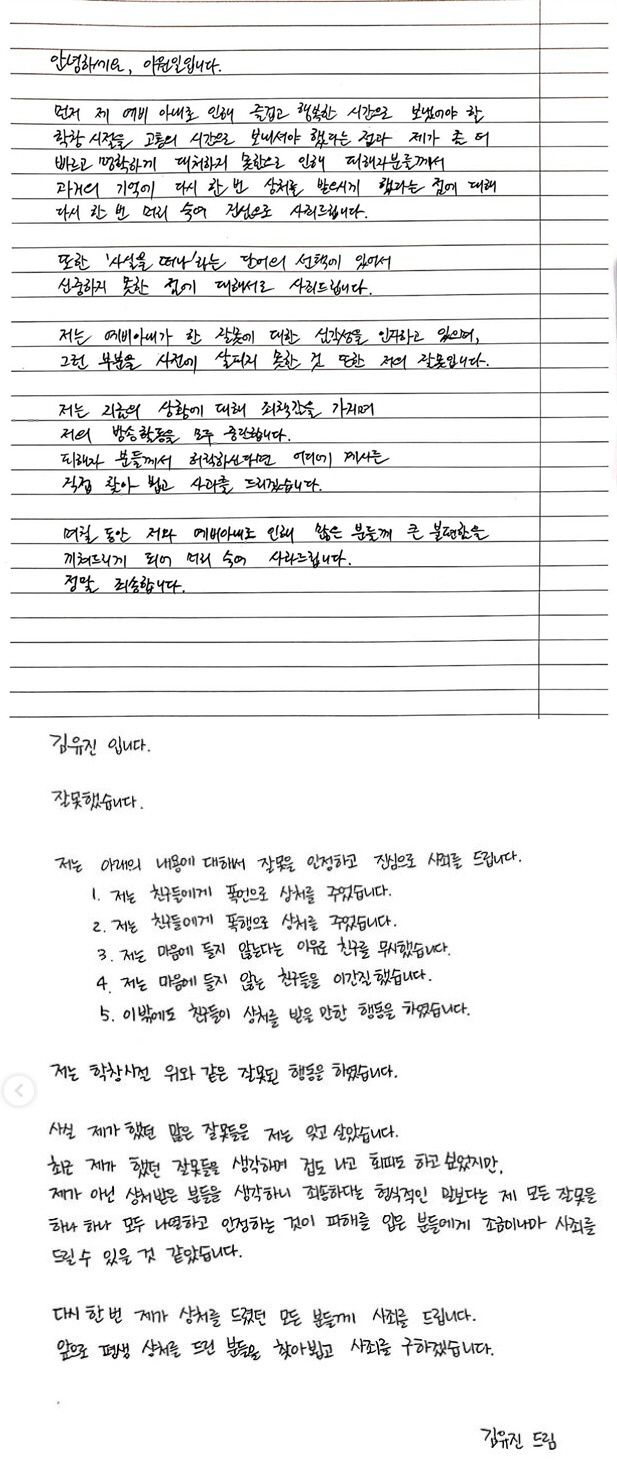 안녕하세요, 이원일입니다.
먼저 제 예비 아내로 인해 즐겁고 행복한 시간으로 보냈어야 할
학창 시절을 고통의 시간으로 보내셔야 했다는 점과 제가 좀 더
빠르고 명확하게 대처하지 못함으로 인해 피해자분들께서
과거의 기억에 다시 한 번 상처를 받으시게 했다는 점에 대해
다시 한 번 머리 숙여 진심으로 사죄드립니다.
또한 '사실을 떠나'라는 단어의 선택에 있어서
신중하지 못한 점에 대해서도 사죄드립니다.
저는 예비아내가 한 잘못에 대한 심각성을 인지하고 있으며,
그런 부분을 사전에 살피지 못한 것 또한 저의 잘못입니다.
저는 지금의 상황에 대해 죄책감을 가지며
저의 방송활동을 모두 중단합니다.
피해자 분들께서 허락하신다면 어디에 계시든
직접 찾아 뵙고 사과를 드리겠습니다.
며칠 동안 저와 예비아내로 인해 많은 분들께 큰 불편함을
끼쳐드리게 되어 머리 숙여 사과드립니다.
정말 죄송합니다.
김유진 입니다.
잘못했습니다.
저는 아래의 내용에 대해서 잘못을 인정하고 진심으로 사죄를 드립니다.
1. 저는 친구들에게 폭언으로 상처를 주었습니다.
2. 저는 친구들에게 폭행으로 상처를 주었습니다.
3. 저는 마음에 들지 않는다는 이유로 친구를 무시했습니다.
4. 저는 마음에 들지 않는 친구들을 이간질했습니다.
5. 이밖에도 친구들이 상처를 받을 만한 행동을 하였습니다.
저는 학창시절 위와 같은 잘못된 행동을 하였습니다.
사실 제가 했던 많은 잘못들을 저는 잊고 살았습니다.
최근 제가 했던 잘못들을 생각하며 겁도 나고 회피도 하고 싶었지만,
제가 아닌 상처받은 분들을 생각하니 죄송하다는 형식적인 말보다는 제 모든 잘못을
하나 하나 모두 나열하고 인정하는 것이 피해를 입은 분들에게 조금이나마 사죄를
드릴수 있을 것 같았습니다.
다시 한 번 제가 상처를 드렸던 모든 분들께 사죄를 드립니다.
앞으로 평생 상처를 드린 분들을 찾아뵙고 사죄를 구하겠습니다.
김유진 드림